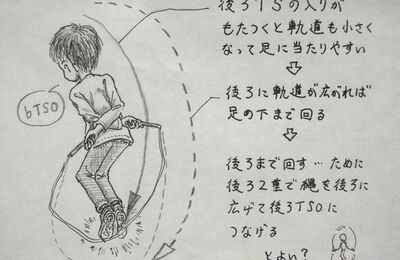 後ろTSの入りが
もたつくと軌道も小さく
なって足に当たりやすい
後ろに軌道が広がれば
足の下まで回る
後ろまで回す…ために
後ろ2重で縄を後ろに
広げて後ろTSOに
つなげる
とよい?
bTSO